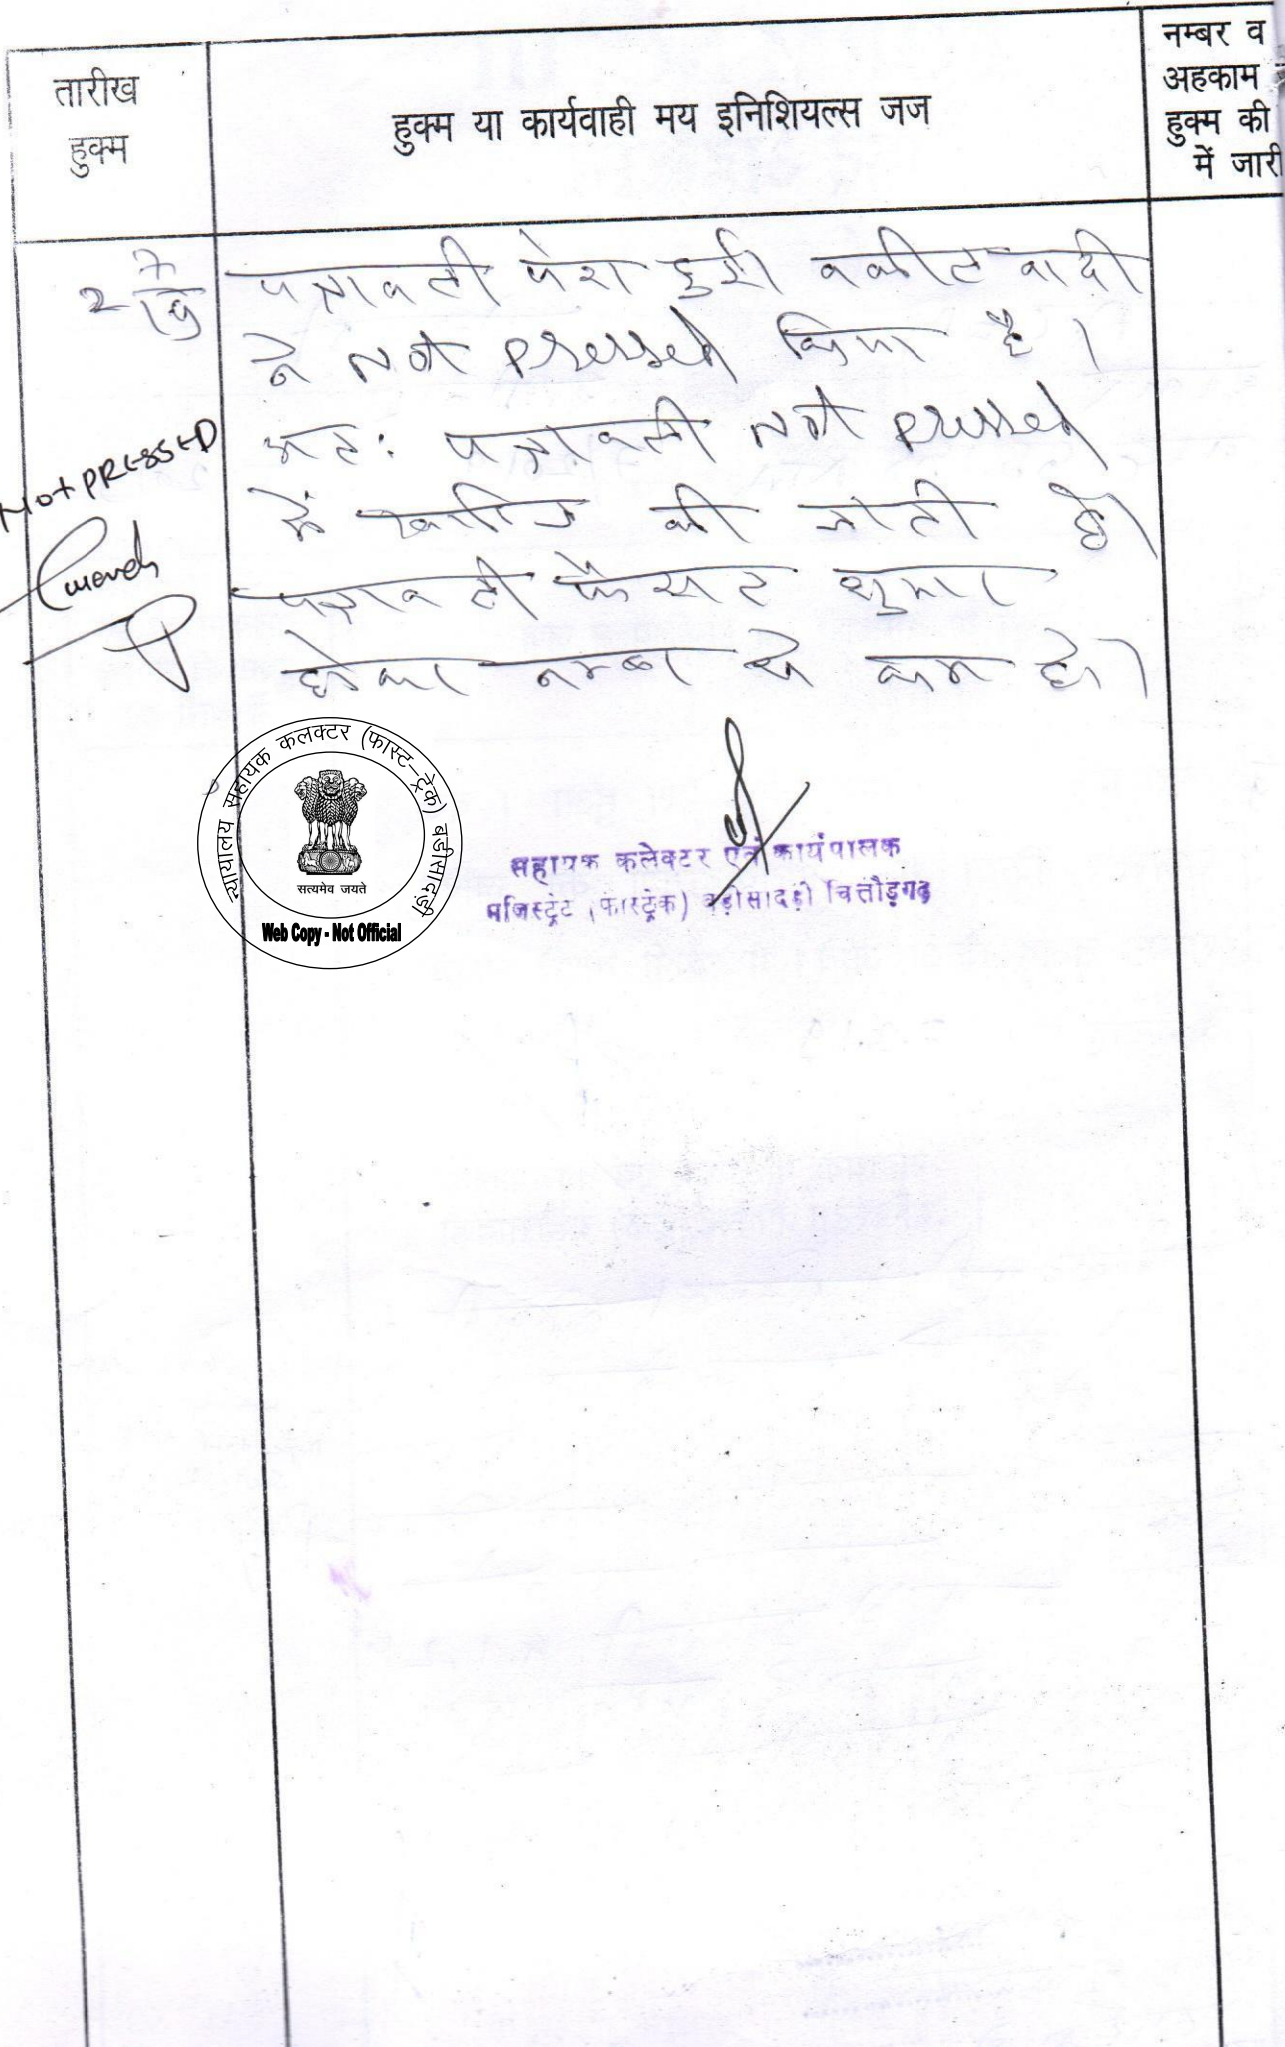 तारीख
हुक्म
हुक्म या कार्यवाही मय इनिशियल्स जज
नम्बर व
अहकाम
हुक्म की
में जारी
पत्रावली पेश हुई। वकील वादी
ने Not pressed किया है।
अतः पत्रावली Not pressed
में खारिज की जाती है।
पत्रावली फैसल शुमार
होकर नम्बर से कम हो।
Not PRESSED
न्यायालय सहायक कलक्टर (फास्ट-ट्रेक) बडीसादड़ी
सत्यमेव जयते
Web Copy - Not Official
सहायक कलेक्टर एवं कार्यपालक
मजिस्ट्रेट (फास्ट्रेक) बड़ीसादड़ी चित्तौड़गढ़